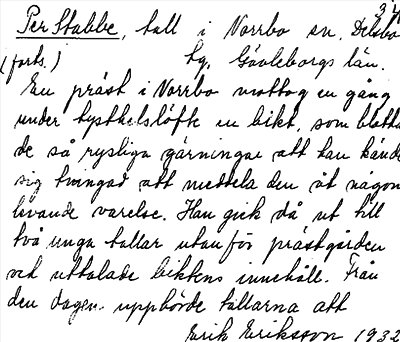 34
Per Stabbe, tall i Norrbo sn, Delsbo
(forts.) tg. Gävleborgs län.
En präst i Norrbo mottog en gång
under tysthetslöfte en bikt, som blotta
de så rysliga gärningar att han kände
sig tvingad att meddela den åt någon
levande varelse. Han gick då ut till
två unga tallar utanför prästgården
och uttalade biktens innehåll. Från
den dagen upphörde tallarna att
Erik Eriksson 1932